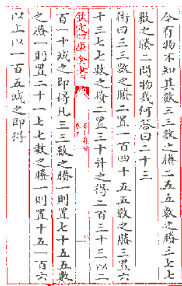 今有物不知其數三三數之賸二五五數之賸三七七
數之賸二問物幾何答曰二十三
術曰三三數之賸二置一百四十五五數之賸三置六
十三七七數之賸二置三十并之得二百三十三以二
欽定四庫全書
百一十減之即得凡三三數之賸一則置七十五五數
之賸一則置二十一七七數之賸一則置十五一百六
以上以一百五減之即得